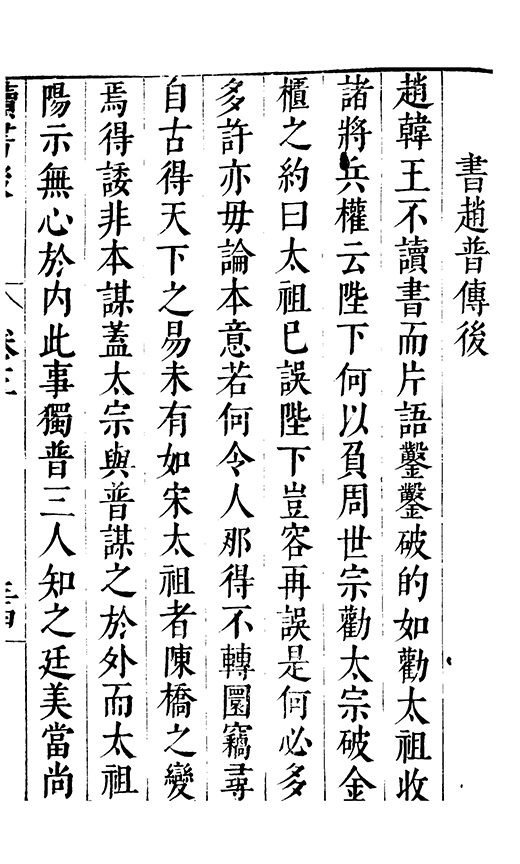 書趙普傳後
趙韓王不讀書而片語鑿鑿破的如勸太祖收
諸將兵權云陛下何以負周世宗勸太宗破金
櫃之約曰太祖已誤陛下豈容再誤是何必多
多許亦毋論本意若何令人那得不轉圜竊尋
自古得天下之易未有如宋太祖者陳橋之變
焉得諉非本謀蓋太宗與普謀之於外而太祖
陽示無心於内此事獨普三人知之廷美當尚
讀書後 卷三